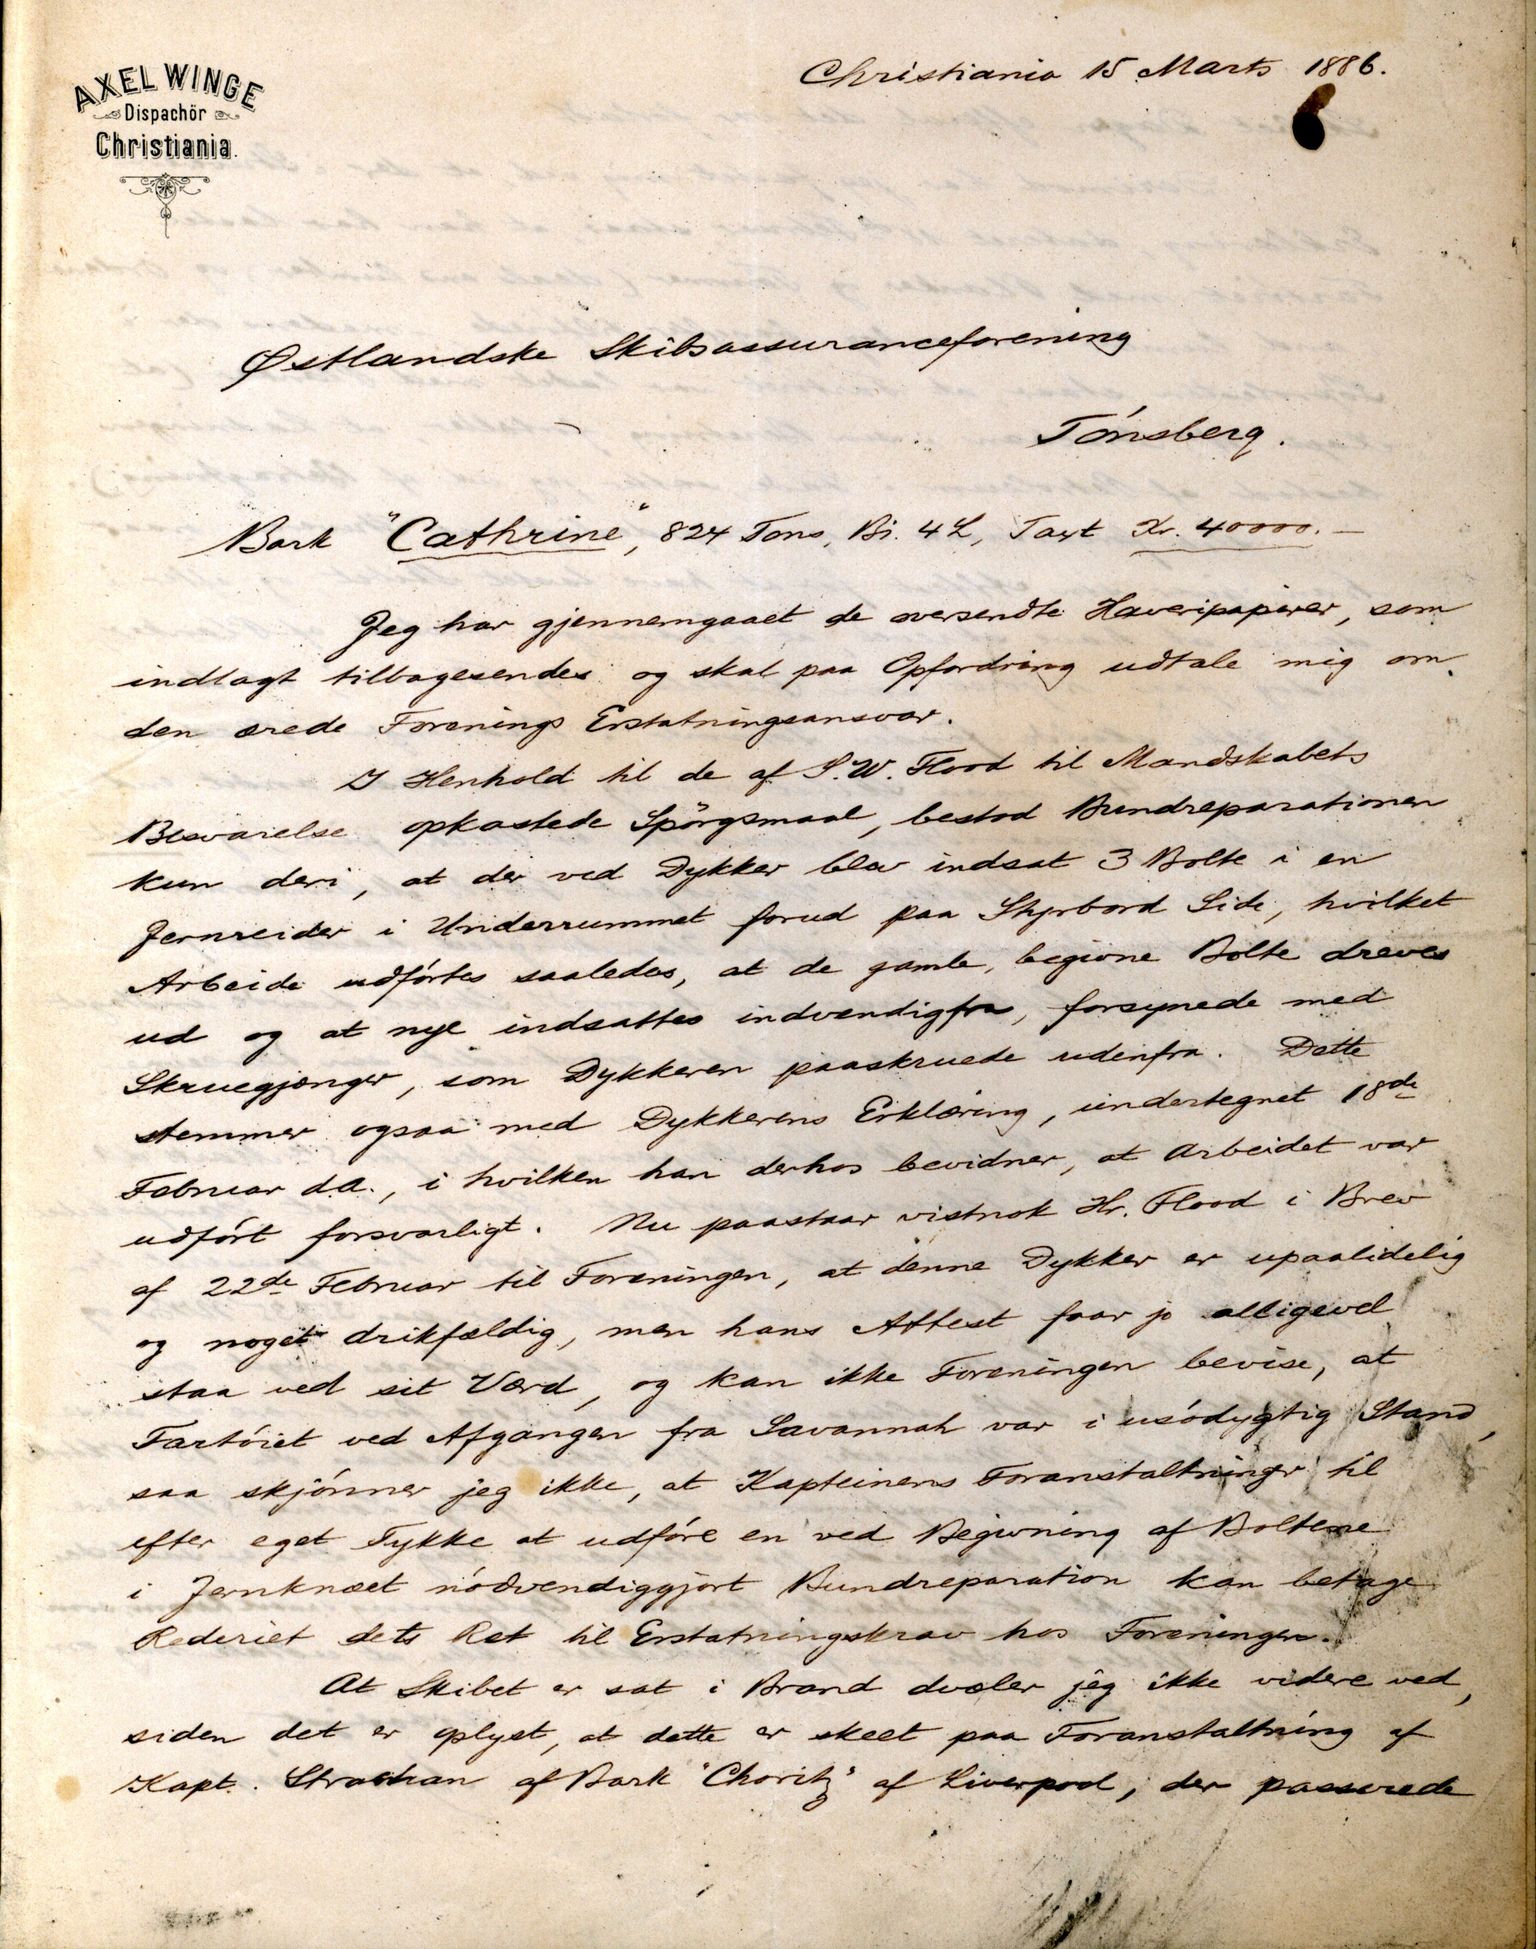 AXEL WINGE
Dispachör
Christiania.
Christiania 15 Marts 1886.
Østlandske Skibsassuranceforening
Tónsberg.
Bark "Cathrine", 824 Tons, Bi. 4 L, Taxt Kr. 40000.—
Jeg har gjennemgaaet de oversendte Haveripapirer, som
indlagt tilbagesendes og skal paa Opfordring udtale mig om
den ærede Forenings Erstatningsansvar.
I Henhold til de af S. W. Flood til Mandskabets
Besvarelse opkastede Spörgsmaal, bestod Bundreparationen
kun deri, at der ved Dykker blev indsat 3 Bolte i en
Jernreider i Underrummet forud paa Styrbord Side, hvilket
Arbeide udförtes saaledes, at de gamle, begivne Bolte dreves
ud og at nye indsattes indvendigfra, forsynede med
Skruegjænger, som Dykkeren paaskruede udenfra. Dette
stemmer ogsaa med Dykkerens Erklæring, undertegnet 18de
Februar d.A., i hvilken han derhos bevidner, at Arbeidet var
udfórt forsvarligt. Nu paastaar vistnok Hr. Flood i Brev
af 22de Februar til Foreningen, at denne Dykker er upaalidelig
og noget drikfældig, men hans Attest faar jo alligevel
staa ved sit Værd, og kan ikke Foreningen bevise, at
Fartóiet ved Afgangen fra Savannah var i usódygtig Stand,
saa skjónner jeg ikke, at Kapteinens Foranstaltninger til
efter eget Tykke at udfóre en ved Begivning af Boltene
i Jernknæet nódvendiggjort Bundreparation kan betage
Rederiet dets Ret til Erstatningskrav hos Foreningen.
At Skibet er sat i Brand dvæler jeg ikke videre ved,
siden det er oplyst, at dette er skeet paa Foranstaltning af
Kapt. Strachan af Bark "Charity" af Liverpool, der passerede